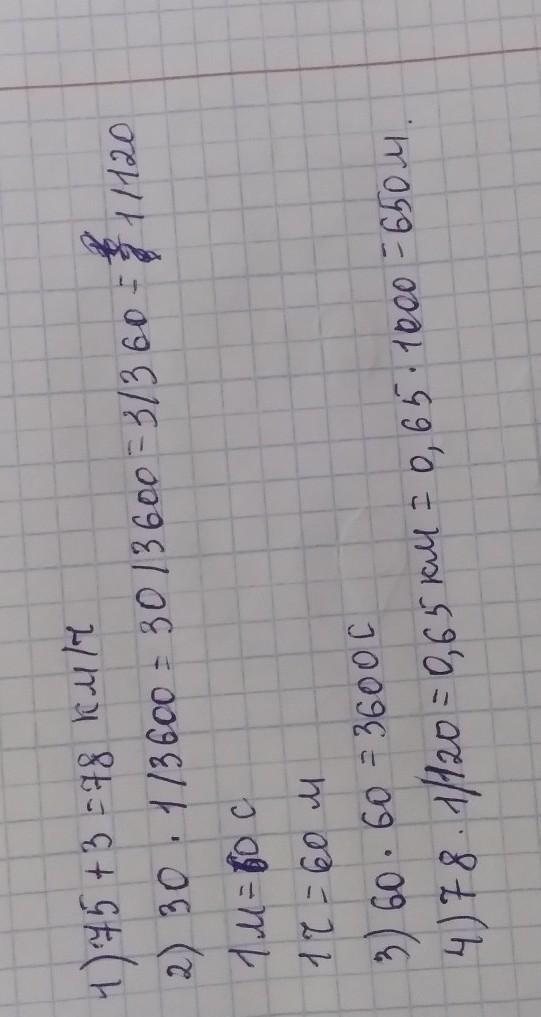 1) 75 + 3 = 78 км/ч
2) 30 · 1/3600 = 30/3600 = 3/360 = 1/120
1м = 60 с
1ч = 60 м
3) 60 · 60 = 3600 с
4) 78 · 1/120 = 0,65 км = 0,65 · 1000 = 650 м.